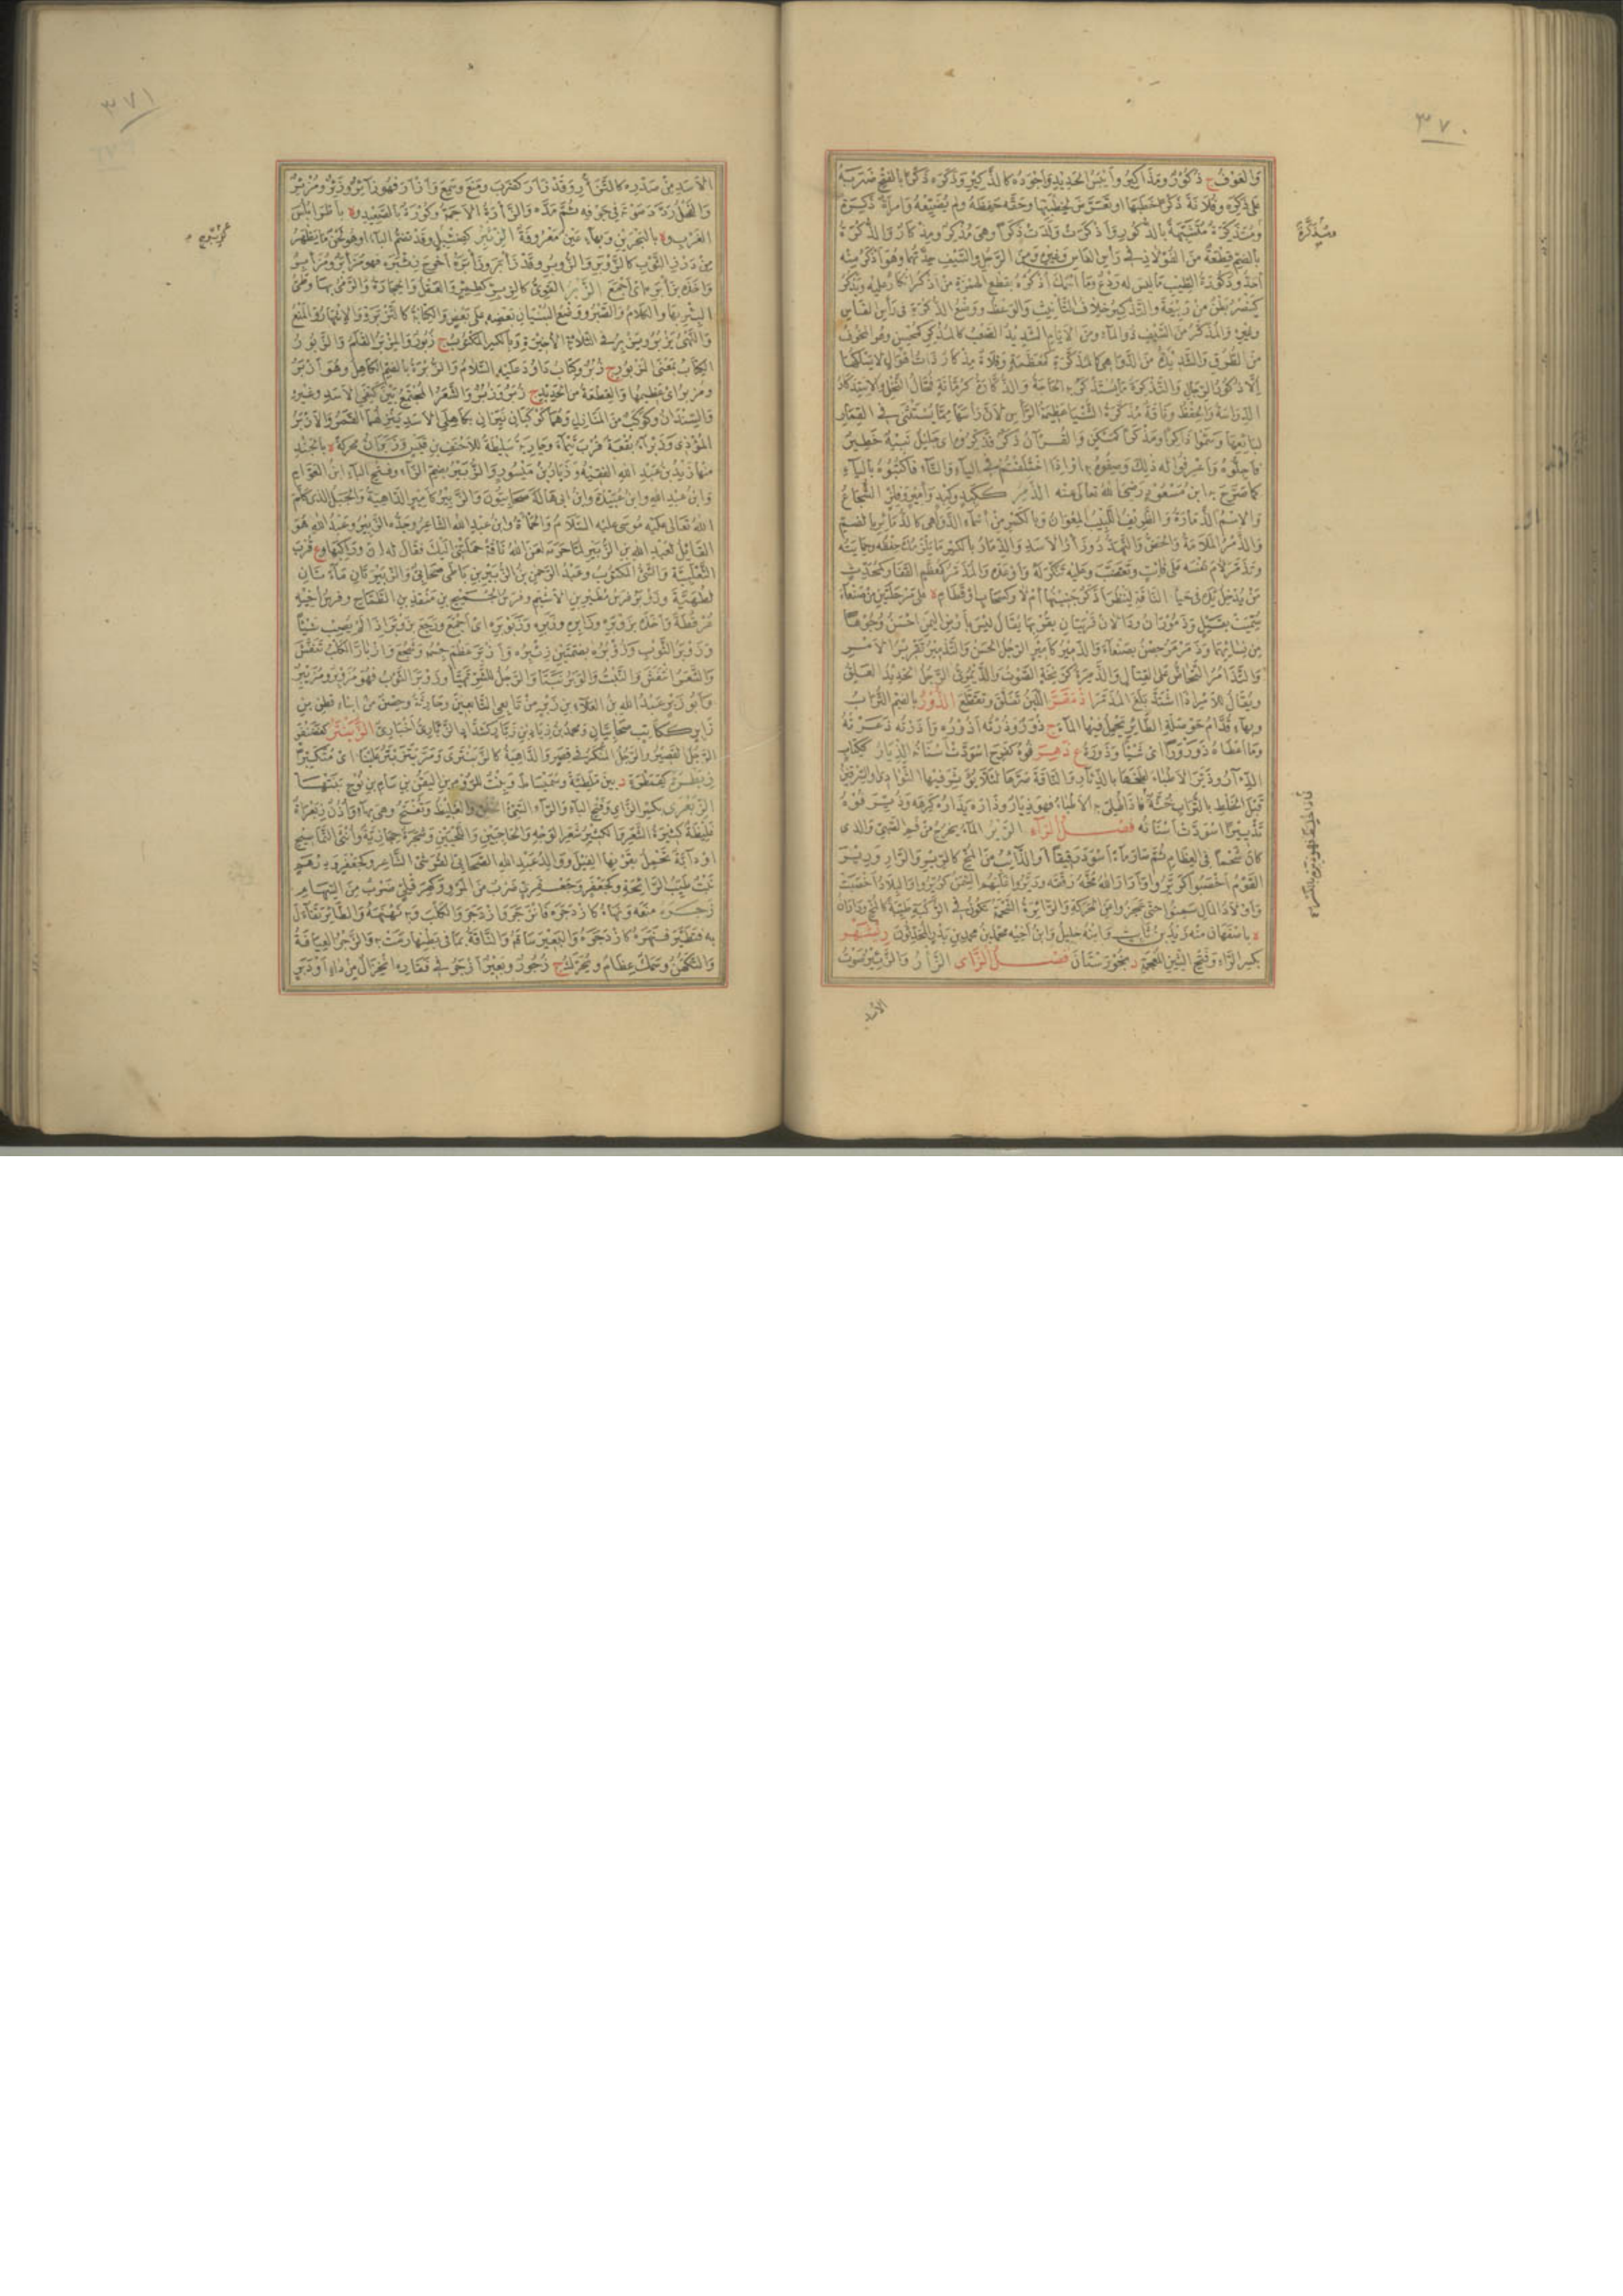 ٣٧٠
والعوف ج ذكور ومذاكير وأيبس الحديد وأجوده كالذكير وذكره ذكرا بالفتح ضربه
على ذكره وفلانة ذكرا خطبها او تعرض لخطبتها وحقه حفظه ولم يضيعه وامرأة ذكرة
ومتذكرة متشبهة بالذكور واذكرت ولدت ذكرا وهى مذكر ومذكار والذكرة
بالضم قطعة من الفولاذ فى رأس الفاس وغيره ومن الرجل والسيف حدتهما وهو اذكر منه
أحد وذكورة الطيب ما ليس له ردع وما اسمك أذكره بقطع الهمزة من أذكر انكار عليه ويذكر
كينصر بطن من ربيعة والتذكير خلاف التأنيث والوعظ ووضع الذكرة فى رأس الفأس
وغيره والمذكر من السيف ذو الماء ومن الايام الشديد الصعب كالمذكر كمحسن وهو المخوف
من الطرق والشديدة من الدواهى كالمذكرة كمعظمة وفلاة مذكار ذات اهوال لا يسلكها
الا ذكور الرجال والتذكرة ما يستذكر به الحاجة والذكارة كرمانة فحال النخل والاستذكار
الدراسة والحفظ وناقة مذكرة الثنيا عظيمة الرأس لان رأسها مما يستثنى فى القمار
لبائعها وسموا ذاكرا ومذكرا كمسكن والقرآن ذكر فذكروه اى جليل نبيه خطير
فأجلوه واعرفوا له ذلك وصفوه به او اذا اختلفتم فى الياء والتاء فاكتبوه بالياء
كما صرح به ابن مسعود رضى الله تعالى عنه الذمر ككبد وكبد وأمير وفلز الشجاع
والاسم الذمارة والظريف اللبيب المعوان وبالكسر من اسماء الدواهى كالذمائر بالضم
والذمر الملامة والحض والتهدد وزأر الاسد والذمار بالكسر ما يلزمك حفظه وحمايته
وتذمر لام نفسه على فائت وتغضب وعليه تنكر له وأوعده والمذمر كمعظم القفا وكمحدث
من يدخل يده فى حياء الناقة لينظر أذكر جنينها أم لا وكسحاب او قطام ة على مرحلتين من صنعاء
سميت بقيل وذموران ودلان قريتان بقربها يقال ليس بأرض اليمن احسن وجوها
من نسائهما وذمرمر حصن بصنعاء والذمير كأمير الرجل الحسن والتذمير تقدير الامر
والتذامر التحاض على القتال والذمرة كزنخة الصوت والذيمرى الرجل الحديد العلق
ويقال للامر اذا اشتد بلغ المذمر اذمقر اللبن تفلق وتقطع الذور بالضم التراب
وبهاء قدام حوصلة الطائر يحمل فيها الماء ج ذور وذرته أذوره وأذرته ذعرته
وما اعطاه ذورورا اى شيئا وذورة ع ذهر فوه كفرح اسودت اسنانه الذيار ككتاب
قبل الخلط بالتراب خثة فاذا طلى به الاطباء فهو ذيار وذاره يذاره كرهه وذير فوه
تذييرا اسودت اسنانه فصل الراء الرير الماء يخرج من فم الصبى والذى
كان شحما فى العظام ثم صار ماء اسود رقيقا أو الذائب من المخ كالرير والرار ورير
بكسر الراء وفتح الشين المعجمة د بخوزستان فصل الزاى الزأر والزئير صوت
الاسد
ومتذكرة
٣٧١
الاسد من صدره كالتزأر وقد زأر كضرب ومنع وسمع وأزأر فهو زائر وزئر ومزئر
والفحل ردد صوته فى جوفه ثم مده والزأرة الاجمة وكورة بالصعيد وة بأطرابلس
الغرب وة بالبحرين وبهاء عين معروفة الزئبر كضئبل وقد تضم الباء او هو لحن ما يظهر
من درز الثوب كالزؤبر والزوبر وقد زأبر وزأبره اخرج زئبره فهو مزأبر ومزأبر
واخذه بزأبره اى أجمع الزبر القوى كالزبر كطمر والعقل والحجارة والرمى بها وطى
البئر بها والكلام والصبر ووضع البنيان بعضه على بعض والكتابة كالتزبرة والانتهار والمنع
والنهى يزبر ويزبر فى الثلاثة الاخيرة وبالكسر المكتوب ج زبور والمزبر القلم والزبور
الكتاب بمعنى المزبور ج زبر وكتاب داود عليه السلام والزبرة بالضم الكاهل وهو أزبر
ومزبرانى عظيمها والقطعة من الحديد ج زبر وزبر والشعر المجتمع بين كتفى الاسد وغيره
والسندان وكوكب من المنازل وهما كوكبان نيران بكاهلى الاسد ينزلهما القمر والازبر
المؤذى وزبراء بقعة قرب تيماء وجارية سليطة للاحنف بن قيس وزبران محركة ة بالجند
منها زيد بن عبد الله الفقيه وزبار بن ميسور والزبير بضم الزاء وفتح الباء ابن العوام
وابن عبد الله وابن عبيدة وابن ابى هالة صحابيون والزبير كامير الداهية والجبل الذى كلم
الله تعالى عليه موسى عليه السلام والحمأة وابن عبد الله الشاعر وجده الزبير وعبد الله هو
القائل لعبد الله بن الزبير لما حرمه لعن الله ناقة حملتنى اليك فقال له ان وراكبها وع قرب
الثعلبية والشئ المكتوب وعبد الرحمن بن الزبير بن باطى صحابى والزبيرتان ماءتان
لطهية وزوبر فرس مطير بن الاشيم وفرس الجميح بن منقذ بن الطماح وفرس اخيه
عرفطة واخذه بزوبره وزابره وزبره وزبوبره اى أجمع ورجع بزوبره اذا لم يصب شيئا
وزوبر الثوب وزؤبره بضمتين زئبره وأزبر عظم جسمه وشجع وازبأر الكلب تنفش
والشعر انتفش والنبت والوبر نبتا والرجل للشر تهيأ وزوبر الثوب فهو مزوبر ومزيبر
وأبو زبر عبد الله بن العلاء بن زبر من تابعى التابعين وحارثة وحصن من ابناء قطن بن
زابر ككاتب صحابيان ومحمد بن زياد بن زبار كشداد الزبارى أخبارى الزبنتر كغضنفر
الرجل القصير والرجل المنكر فى قصر والداهية كالزبنترى ومر يتزبتر علينا اى متكبرا
زبطرة كقمطرة د بين ملطية وسميساط وبنت للروم بن اليفن بن سام بن نوح بنتها
الزبعرى بكسر الزاى وفتح الباء والراء السيئ الخلق والغليظ وتفتح وهى بهاء وأذن زبعراة
غليظة كثيرة الشعر والكثير شعر الوجه والحاجبين واللحيين وشجرة حجازية وأنثى التماسيح
او دابة تحمل بقرنها الفيل ووالد عبد الله الصحابى القرشى الشاعر وكجعفر ودرهم
نبت طيب الرائحة وكجعفر وجعفرى ضرب من المرو وكهرقلى ضرب من السهام
زجره منعه ونهاه كازدجره فانزجر وازدجر والكلب وبه نهنهه والطائر تفاءل
به فتطير فنهره كازدجره والبعير ساقه والناقة بما فى بطنها رمت به والزجر العيافة
والتكهن وسمك عظام ويحرك ج زجور وبعير أزجر فى فقاره انخزال من داء او دبر